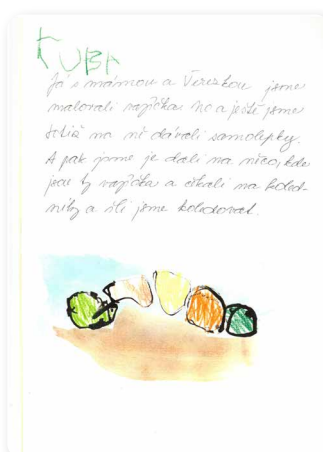 KUBA
Já s mámou a Terezkou jsme
malovali vajíčka. No a ještě jsme
totiž na ně dávali samolepky.
A pak jsme je dali na něco, kde
jsou ty vajíčka a čekali na koled-
níky a šli jsme koledovat.